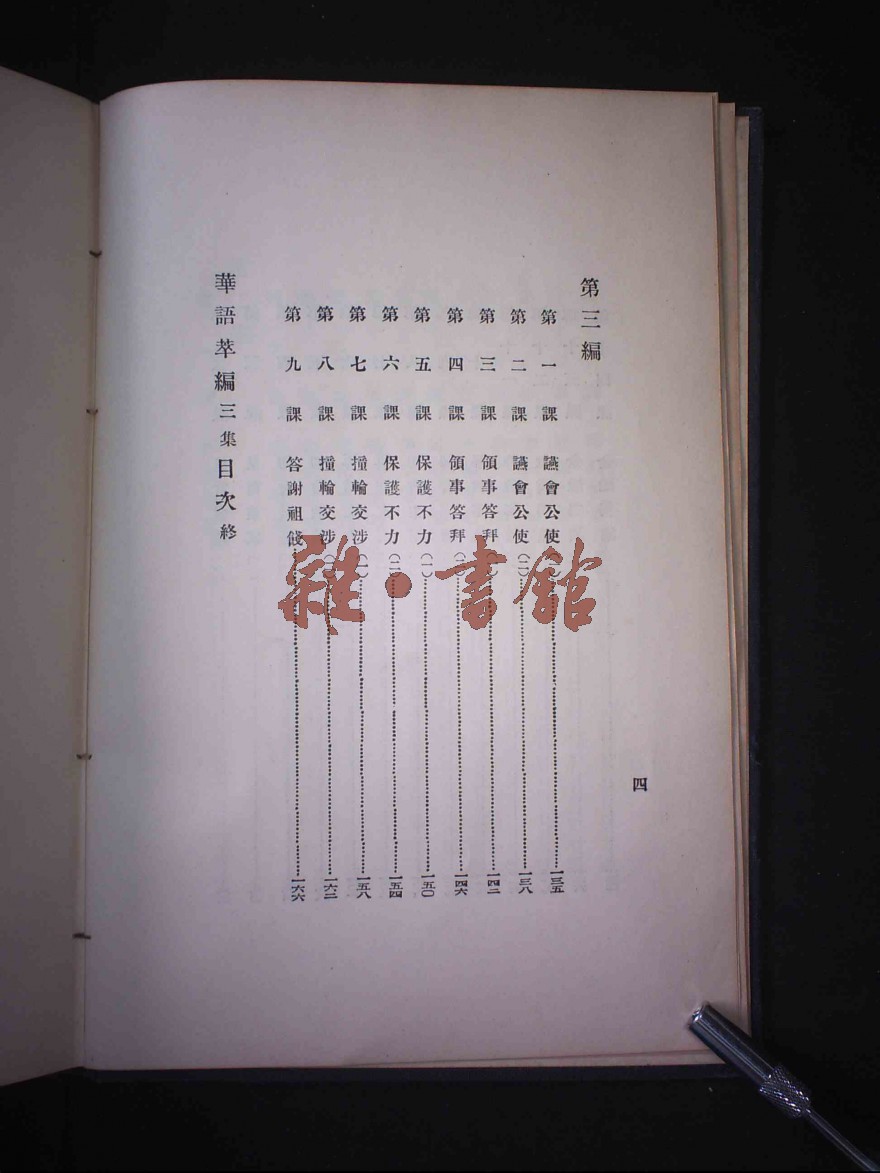 第三編
第一課 讌會公使 一三五
第二課 讌會公使(二) 一三八
第三課 領事答拜 一四二
第四課 領事答拜 一四六
第五課 保護不力(一) 一五〇
第六課 保護不力(二) 一五四
第七課 撞輪交涉(一) 一五八
第八課 撞輪交涉 一六二
第九課 答謝祖餞 一六六
華語萃編三集目次終
四
雜·書館